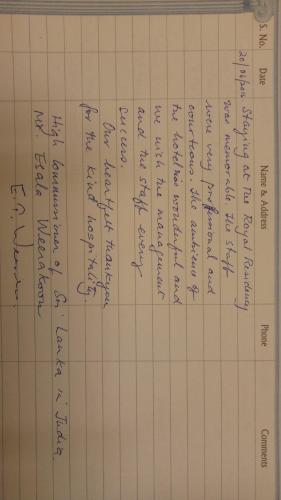 S. No. Date Name & Address Phone Comments
Staying at The Royal Residency
was memorable. The staff
were very professional and
courteous. The ambience of
the hotel was wonderful and
we wish the management
and the staff every
success.
Our heartfelt thankyou
for the kind hospitality.
High Commissioner of Sri Lanka in India.
Mr. Esala Weerakoon